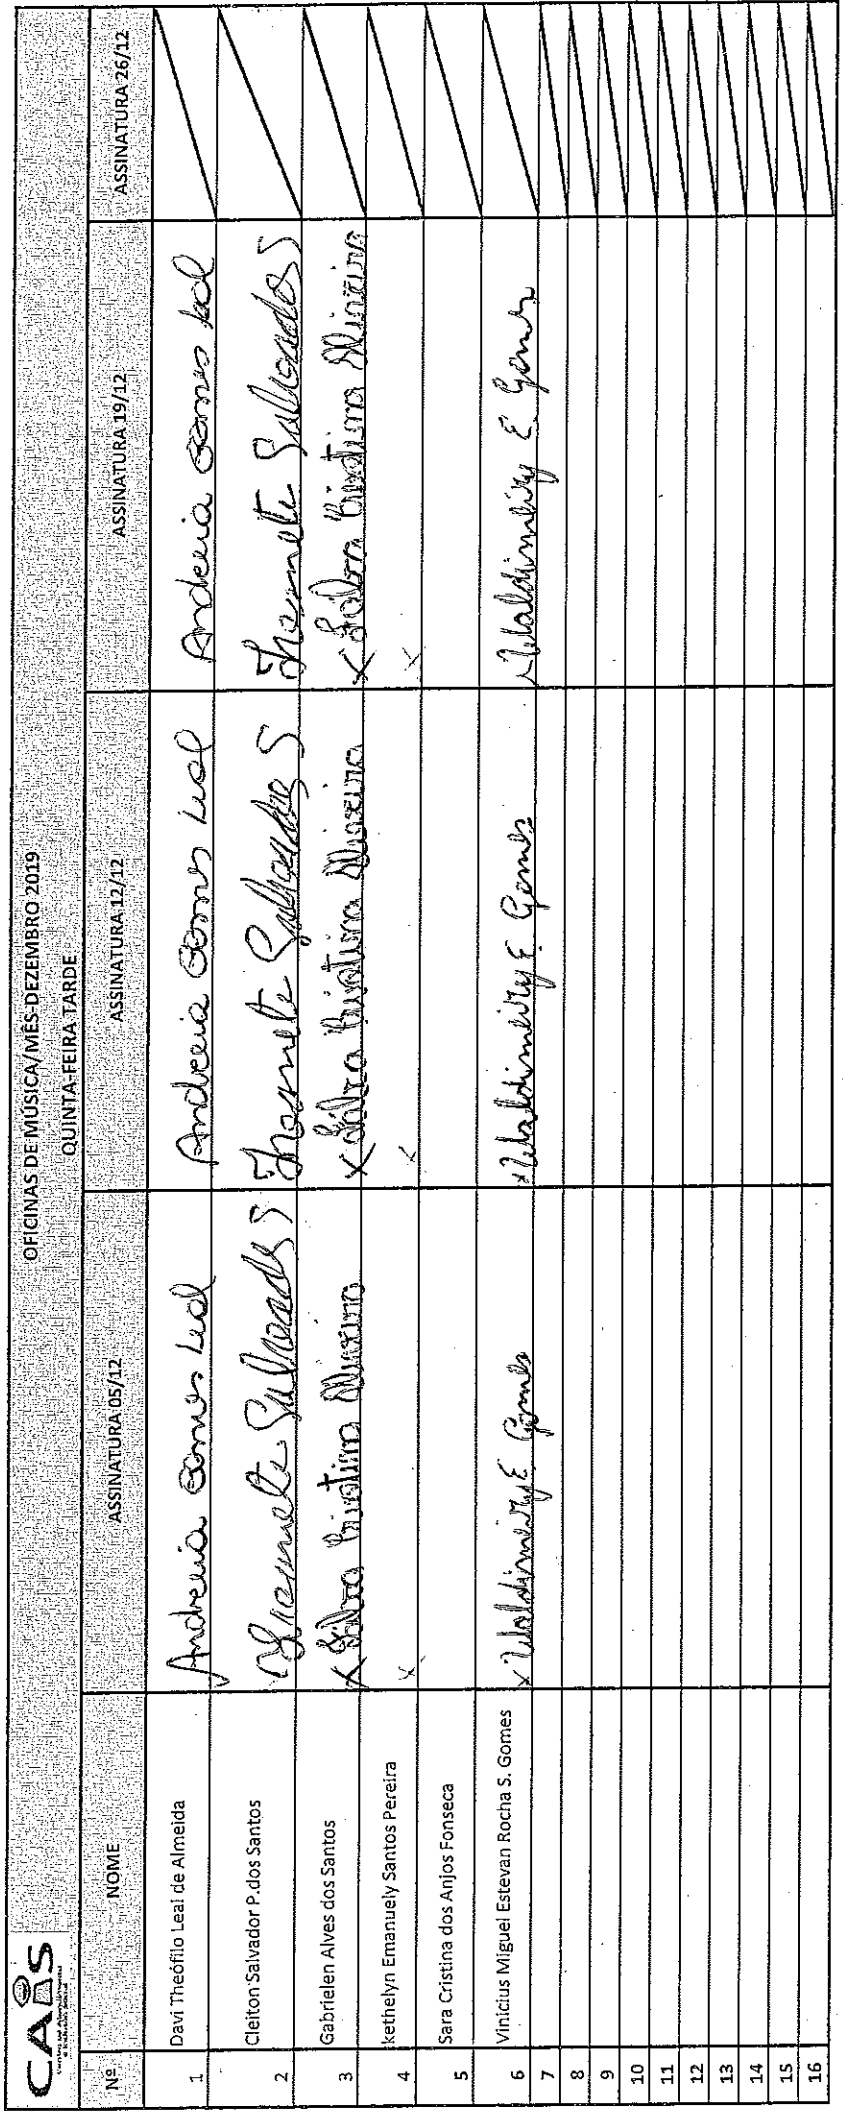 CAIS
OFICINAS DE MÚSICA/MÊS-DEZEMBRO 2019
QUINTA-FEIRA TARDE
Nº NOME ASSINATURA 05/12 ASSINATURA 12/12 ASSINATURA 19/12 ASSINATURA 26/12
1 Davi Theófilo Leal de Almeida Andreia Gomes Leal Andreia Gomes Leal Andreia Gomes Leal
2 Cleiton Salvador P.dos Santos Salvador S Salvador S Salvador S
3 Gabrielen Alves dos Santos x x x
4 kethelyn Emanuely Santos Pereira x x x
5 Sara Cristina dos Anjos Fonseca
6 Vinícius Miguel Estevan Rocha S. Gomes x Waldimeiry E Gomes x Waldimeiry E Gomes x Waldimeiry E. Gomes
7
8
9
10
11
12
13
14
15
16